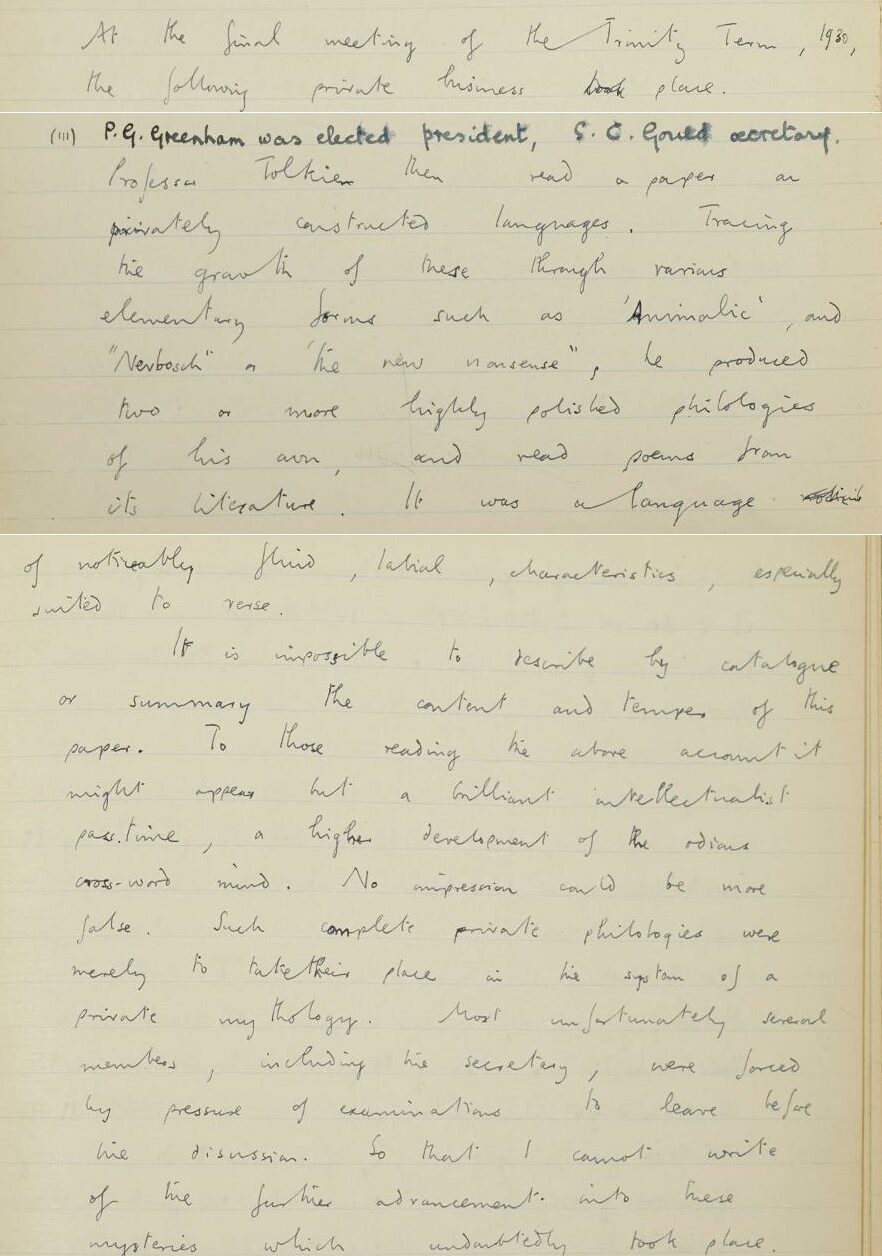 At the final meeting of the Trinity Term, 1930,
the following private business took place.
(III) P.G. Greenham was elected president, S. C. Gould secretary.
Professor Tolkien then read a paper on
privately constructed languages. Tracing
the growth of these through various
elementary forms such as 'Animalic', and
"Nevbosh" or 'the new nonsense", he produced
two or more highly polished philologies
of his own, and read poems from
its literature. It was a language
of noticeably fluid, labial, characteristics, especially
suited to verse.
It is impossible to describe by catalogue
or summary the content and temper of this
paper. To those reading the above account it
might appear but a brilliant intellectualist
pass-time, a higher development of the odious
cross-word mind. No impression could be more
false. Such complete private philologies were
merely to take their place in the system of a
private mythology. Most unfortunately several
members, including the secretary, were forced
by pressure of examinations to leave before
the discussion. So that I cannot write
of the further advancement into these
mysteries which undoubtedly took place.